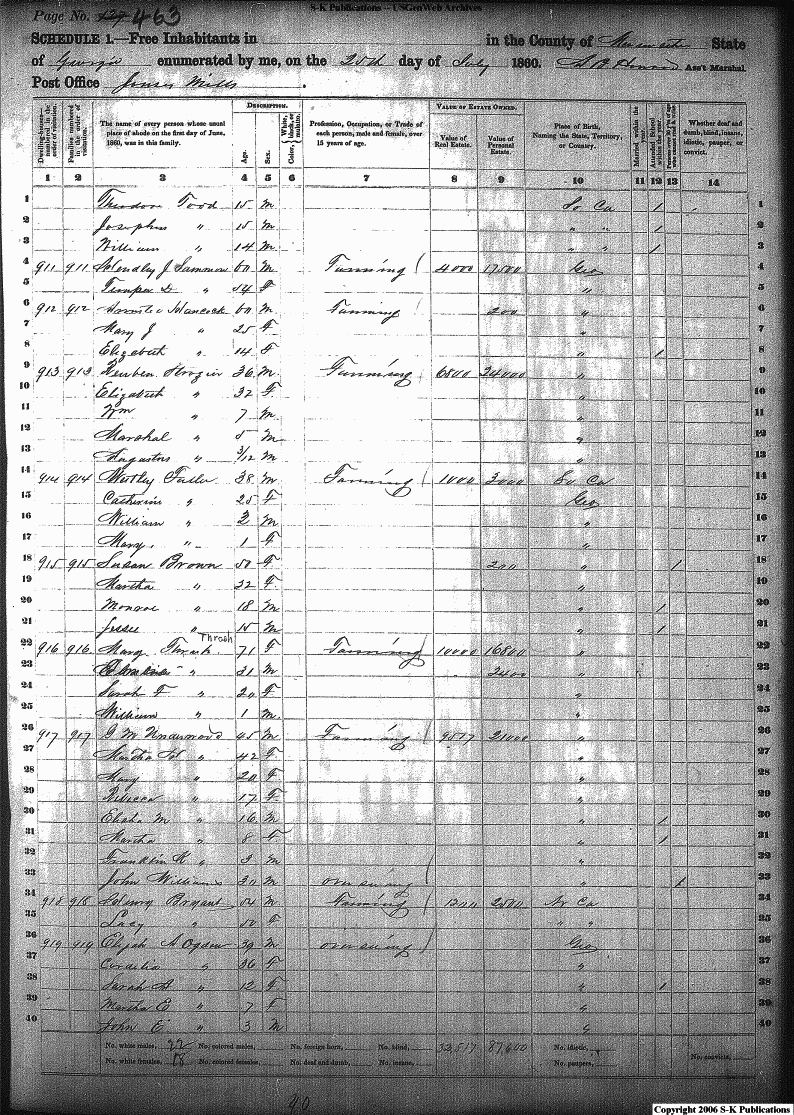 S-K Publications -- USGenWeb Archives
Page No. 463
SCHEDULE 1.—Free Inhabitants in in the County of State
of Georgia enumerated by me, on the 25th day of July 1860. Ass't Marshal
Post Office Jones Mills
Dwelling-houses— numbered in the order of visitation.
Families numbered in the order of visitation.
The name of every person whose usual place of abode on the first day of June, 1860, was in this family.
DESCRIPTION.
Age.
Sex.
Color, White, black, or mulatto.
Profession, Occupation, or Trade of each person, male and female, over 15 years of age.
VALUE OF ESTATE OWNED.
Value of Real Estate.
Value of Personal Estate.
Place of Birth, Naming the State, Territory, or Country.
Married within the year.
Attended School within the year.
Persons over 20 y'rs of age who cannot read & write.
Whether deaf and dumb, blind, insane, idiotic, pauper, or convict.
1 2 3 4 5 6 7 8 9 10 11 12 13 14
1 Theodore Todd 15 M So Ca 1 1
2 Josephus " 15 M " " 1 2
3 William " 14 M " " 1 3
4 911 911 J Sammon 60 M 4000 17500 Geo 4
5 " 54 F " 5
6 912 912 Hancock 60 M 200 " 6
7 Mary J " 25 F " 7
8 Elizabeth " 14 F " 1 8
9 913 913 Reuben Strozier 36 M 6800 24000 " 9
10 Elizabeth " 32 F " 10
11 Wm " 7 M " 11
12 Marshal " 5 M " 12
13 Augustus " 3/12 M " 13
14 914 914 Westley Fuller 38 M 1000 3000 So Ca 14
15 Catherine " 25 F Geo 15
16 William " 2 M " 16
17 Mary " 1 F " 17
18 915 915 Susan Brown 50 F 200 " 1 18
19 Martha " 32 F " 19
20 Monroe " 18 M " 1 20
21 Jessee " 15 M " 1 21
Thrash
22 916 916 Mary Thrash 71 F 10000 16800 " 22
23 " 31 M 2400 " 23
24 Sarah F " 20 F " 24
25 William " 1 M " 25
26 917 917 G M Underwood 45 M 9517 21000 " 26
27 Martha " 42 F " 27
28 Mary " 20 F " 28
29 Rebecca " 17 F " 29
30 Elisha M " 16 M " 1 30
31 Martha " 8 F " 1 31
32 Franklin K " 3 M " 32
33 John Williams 30 M overseeing " 1 33
34 918 918 Henry Bryant 54 M 1200 2500 No Ca 34
35 Lucy " 50 F " " 35
36 919 919 Elijah A Ogden 39 M overseeing Geo 36
37 Cordelia " 36 F " 37
38 Sarah A " 12 F " 1 38
39 Martha E " 7 F " 39
40 John E " 3 M " 40
No. white males, 22 No. colored males, No. foreign born, No. blind, 32,517 87,600 No. idiotic,
No. white females, 18 No. colored females, No. deaf and dumb, No. insane, No. paupers, No. convicts,
90
Copyright 2006 S-K Publications